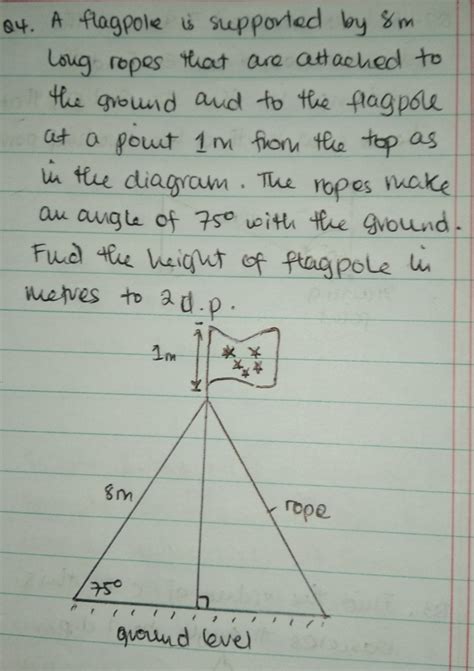 Q4. A flagpole is supported by 8m
long ropes that are attached to
the ground and to the flagpole
at a point 1m from the top as
in the diagram. The ropes make
an angle of 75° with the ground.
Find the height of flagpole in
metres to 2 d.p.
1m
8m
rope
75°
ground level